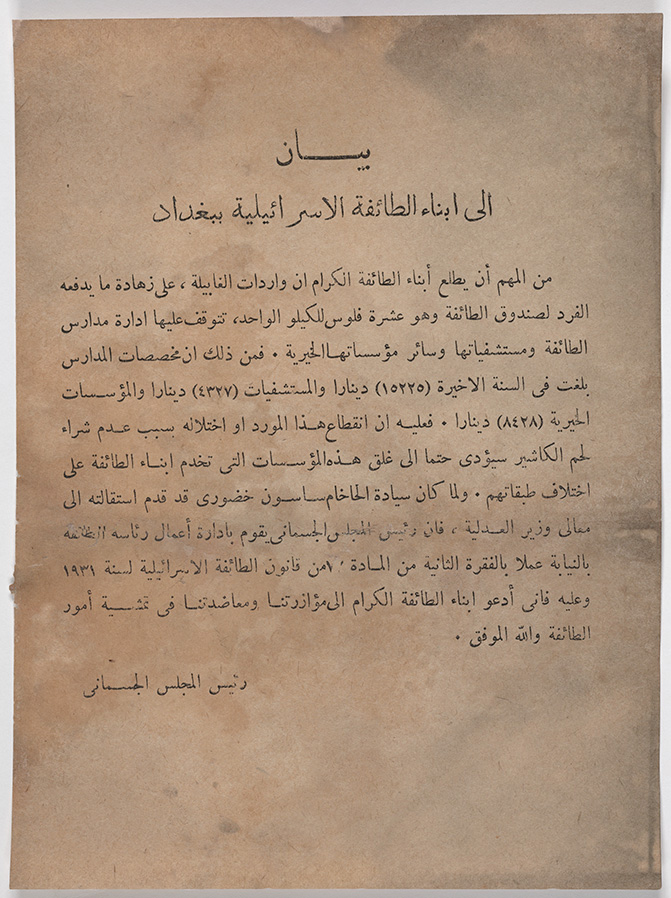 بيـــان
الى ابناء الطائفة الاسرائيلية ببغداد
من المهم أن يطلع أبناء الطائفة الكرام ان واردات الغابيلة ، على زهادة ما يدفعه
الفرد لصندوق الطائفة وهو عشرة فلوس للكيلو الواحد، تتوقف عليها ادارة مدارس
الطائفة ومستشفياتها وسائر مؤسساتها الخيرية ٠ فمن ذلك ان مخصصات المدارس
بلغت فى السنة الاخيرة (١٥٢٢٥) دينارا والمستشفيات (٤٣٢٧) دينارا والمؤسسات
الخيرية (٨٤٢٨) دينارا ٠ فعليه ان انقطاع هذا المورد او اختلاله بسبب عدم شراء
لحم الكاشير سيؤدى حتما الى غلق هذه المؤسسات التى تخدم ابناء الطائفة على
اختلاف طبقاتهم ٠ ولما كان سيادة الحاخام ساسون خضورى قد قدم استقالته الى
معالى وزير العدلية ، فان رئيس المجلس الجسمانى يقوم بادارة أعمال رئاسه الطائفة
بالنيابة عملا بالفقرة الثانية من المادة من قانون الطائفة الاسرائيلية لسنة ١٩٣١
وعليه فانى أدعو ابناء الطائفة الكرام الى مؤازرتنا ومعاضدتنا فى تمشية أمور
الطائفة والله الموفق ٠
رئيس المجلس الجسمانى